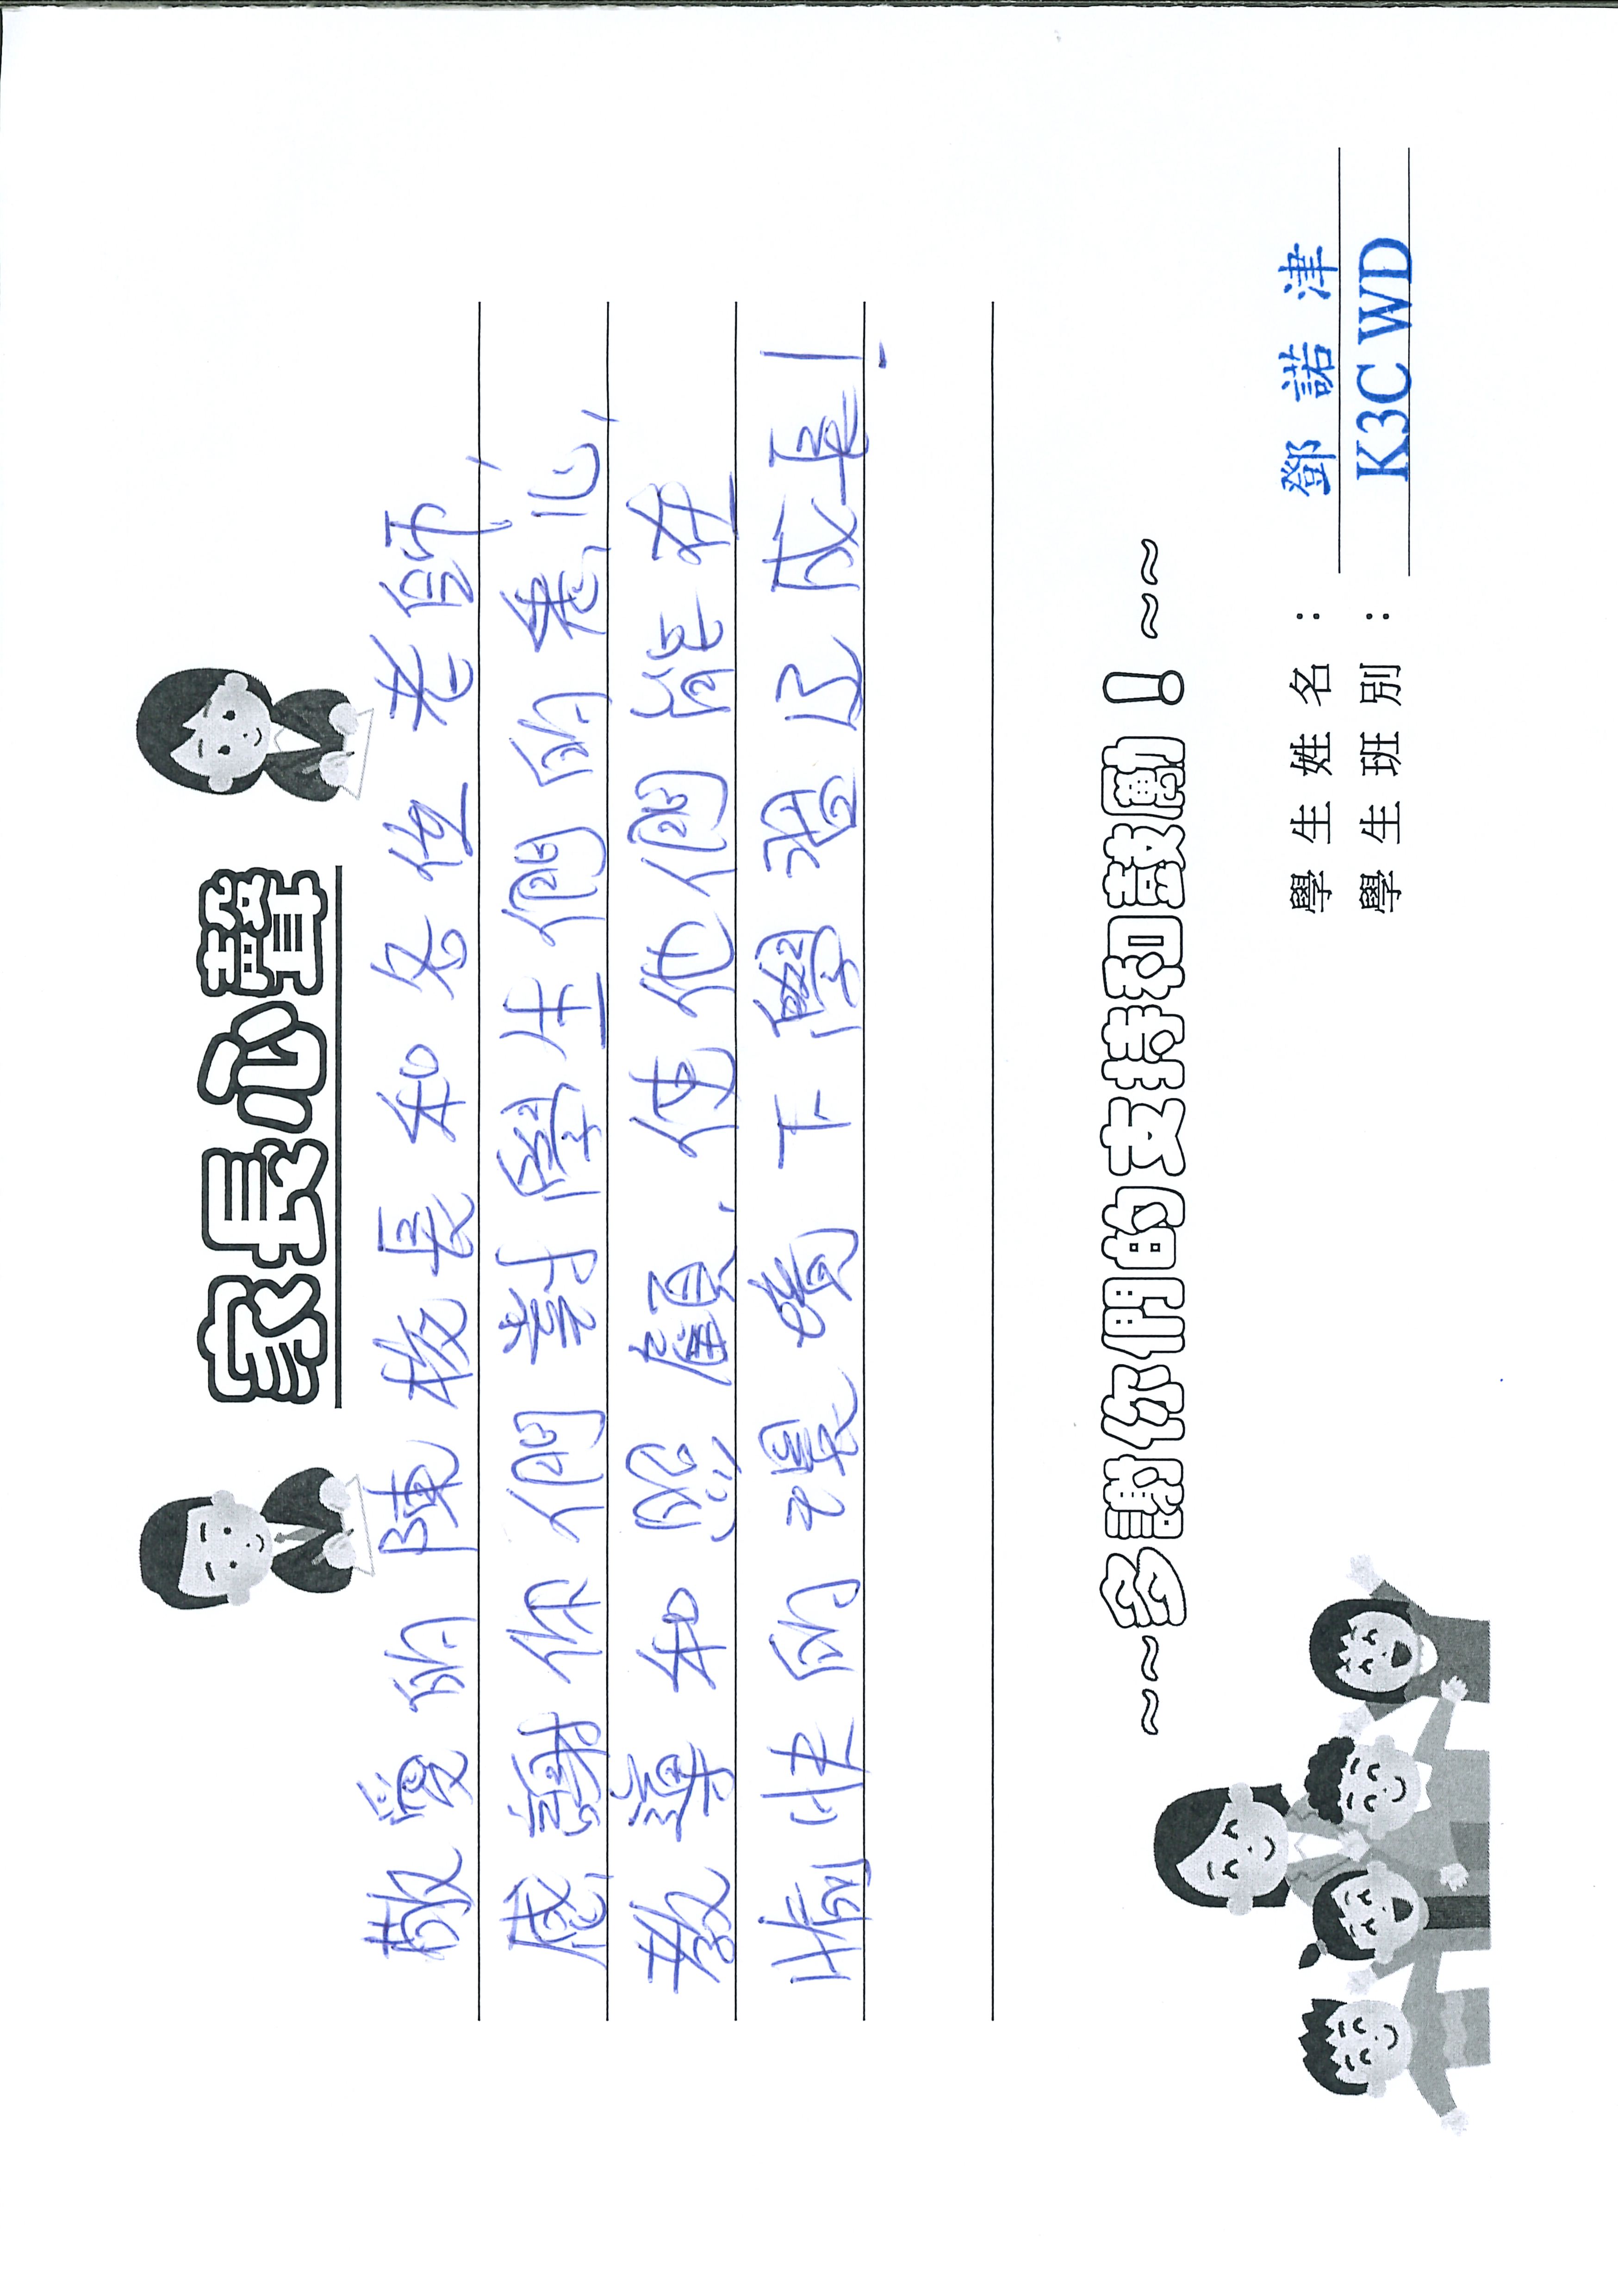 家長心聲
敬愛的陳校長和各位老師,
感謝你們對學生們的愛心,
教導和照顧,使他們能在
愉快的環境下學習及成長!
~~多謝你們的支持和鼓勵!~~
學生姓名: 鄧諾津
學生班別: K3C WD